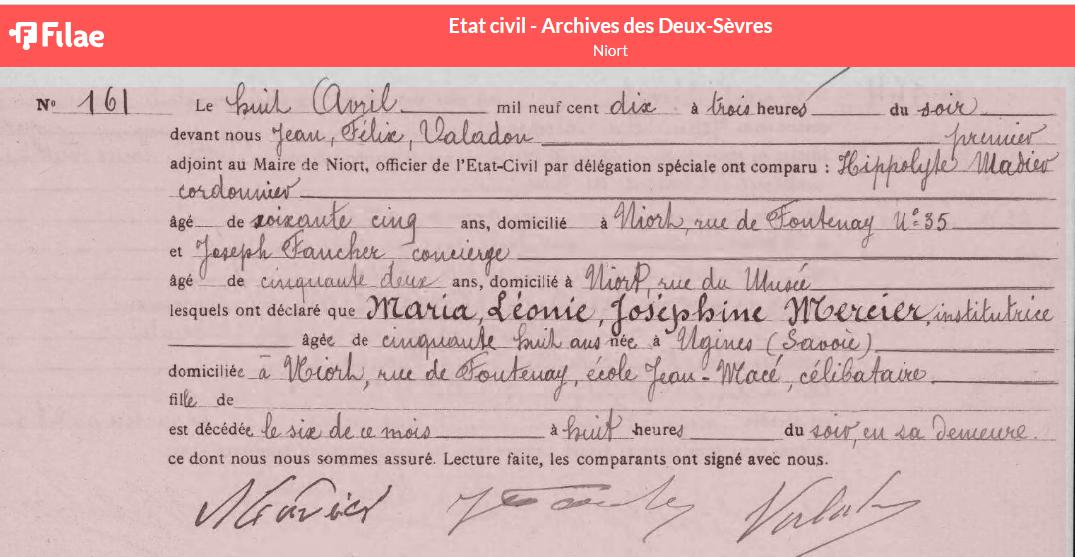 Filae
Etat civil - Archives des Deux-Sèvres
Niort
N° 161 Le huit Avril mil neuf cent dix à trois heures du soir
devant nous Jean, Félix, Valadon premier
adjoint au Maire de Niort, officier de l'Etat-Civil par délégation spéciale ont comparu : Hippolyte Madier
cordonnier
âgé de soixante cinq ans, domicilié à Niort, rue de Fontenay N° 35
et Joseph Faucher, concierge
âgé de cinquante deux ans, domicilié à Niort, rue du Musée
lesquels ont déclaré que Maria, Léonie, Joséphine Mercier, institutrice
âgée de cinquante huit ans née à Ugines (Savoie)
domiciliée à Niort, rue de Fontenay, école Jean-Macé, célibataire
fille de
est décédée le six de ce mois à huit heures du soir, en sa demeure.
ce dont nous nous sommes assuré. Lecture faite, les comparants ont signé avec nous.